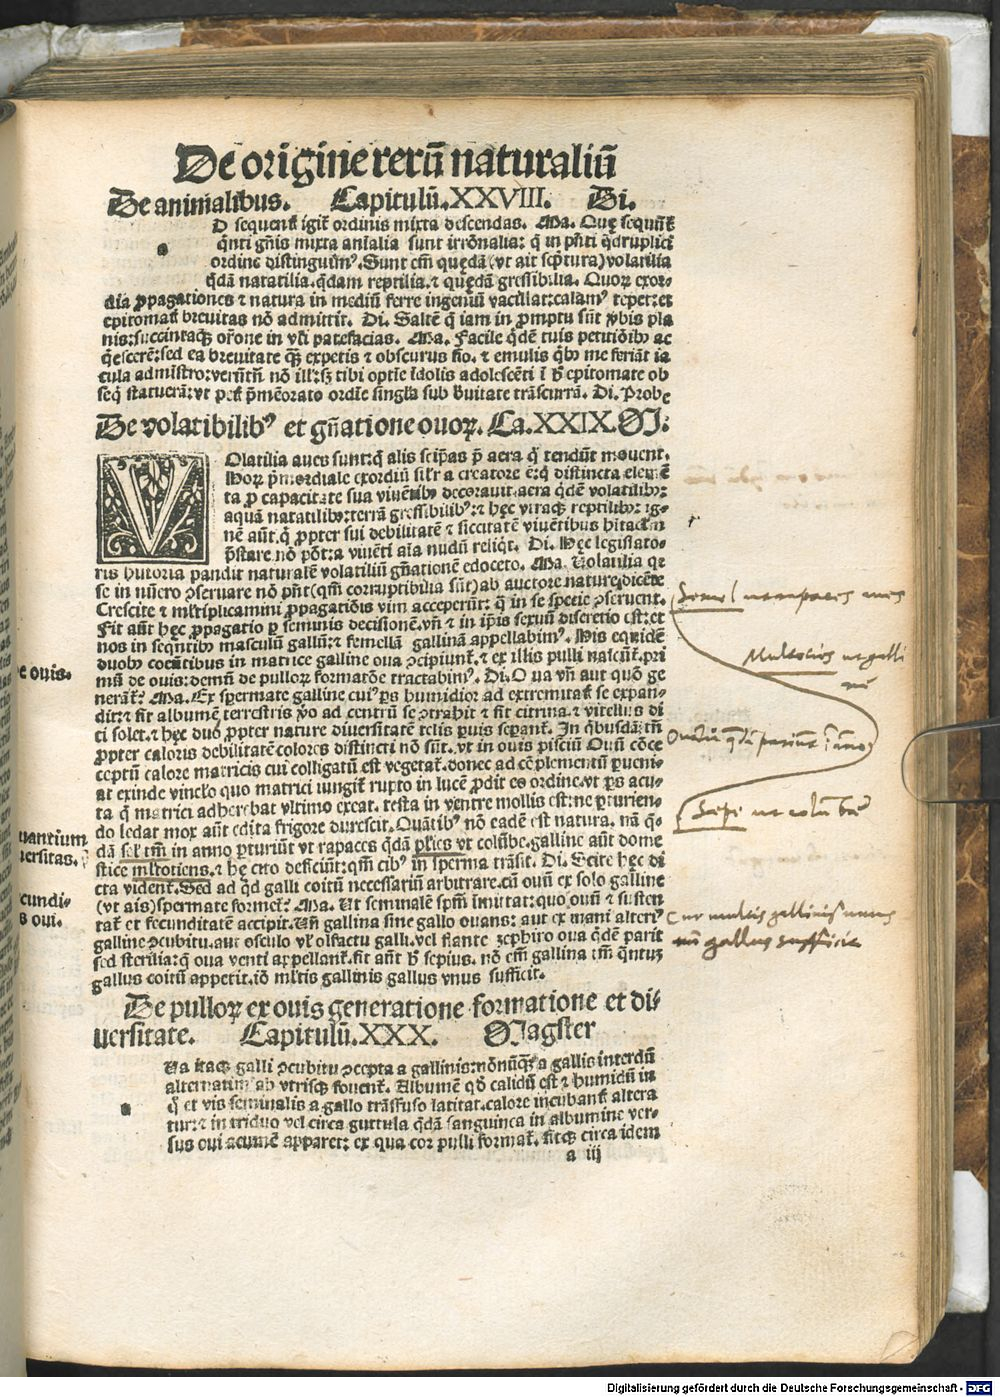 De origine rerū naturaliū
De animalibus. Capitulū. XXVIII. Di.
D sequentꝭ igiť ordinis mixta descendas. Ma. Quę sequūť
q̈nti gn̄is mixta anīalia sunt irrōnalia: q̄ in pn̄ti q̈druplici
ordine distinguūmꝰ. Sunt em̄ quędā (vt ait scp̄tura) volatilia
q̈dā natatilia. q̈dam reptilia. ⁊ quędā gressibilia. Quoꝝ exor⸗
dia ꝓpagationes ⁊ natura in mediū ferre ingeniū vacillat: calamꝰ tepet: et
epitomatꝭ breuitas nō admittit. Di. Saltē q̄ iam in promptu sūt ꝟbis pla
nis: succintaqꝫ orōne in vn̄i patefacias. Ma. Facile q̈dē tuis petitiōibꝰ ac
q̇escerē: sed ea breuitate qꝫ expetis ⁊ obscurus fio. ⁊ emulis q̇bꝰ me feriāt ia
cula admīstro: verūtn̄ nō ill': sꝫ tibi optīe īdolis adolescēti ī h̄ epitomate ob
seq̇ statuerā: vt pe⁊ p̄mēorato ordīe singľa sub ƀuitate trāscurrā. Di. Probe
De volatibilibꝰ et gn̄atione ouoꝝ. Ca. XXIX. M:
VOlatilia aues sunt: q̄ alis seip̄as p̄ aera q̄ tendūt mouent.
Hoꝝ p̄mordiale exordiū sil'r a creatore ē: q̇ distincta elemē
ta ꝓ capacitate sua viuētibꝰ decorauit. aera q̈dē volatilibꝰ:
aquā natatilibꝰ: terrā gressibilibꝰ: ⁊ hęc vtraqꝫ reptilibꝰ: ig⸗
nē aūt. q̇ ꝓpter sui debilitatē ⁊ siccitatē viuētibus hitaclm̄
p̄stare nō pōt: a viuēti aīa nudū reliq̇t. Di. Hęc legislato⸗
ris historia pandit naturalē volatiliū gn̄ationē edoceto. Ma. Volatilia qꝛ
se in nūero ꝯseruare nō pn̄t (qm̄ corruptibilia sūt) ab auctore nature dicēte
Crescite ⁊ ml'tiplicamini ꝓpagatiōis vim acceperūt: q̄ in se specie ꝯseruent.
Fit aūt hęc ꝓpagatio ꝑ seminis decisionē. vn̄ ⁊ in ip̄is sexuū discretio est: et
nos in seqn̄tibꝰ masculū gallū: ⁊ femellā gallinā appellabimꝰ. His equidē
duobꝰ coeūtibus in matrice galline oua ꝯcipiunť. ⁊ ex illis pulli nascūť. pri
mū de ouis: demū de pulloꝝ formatōe tractabimꝰ. Di. Oua vn̄ aut quō ge
nerāť: Ma. Ex spermate galline cuiꝰ ꝑs humidior ad extremitatꝭ se expan⸗
dit: ⁊ fit albumē terrestris ꝟo ad centrū se ꝯtrahit ⁊ fit citrina ⁊ vitellus di
ci solet. ⁊ hęc duo ꝓpter nature diuersitatē telis puis sepanť. In q̇busdā tn̄
ꝓpter caloris debilitatē colores distincti nō sūt. vt in ouis pisciū Ouū cōce
ceptū calore matricis cui colligatū est vegetať. donec ad cōplementū ꝑueni⸗
at exinde vinclo quo matrici iungiť rupto in lucē ꝓdit eo ordine. vt ꝑs acu⸗
ta q̄ matrici adherebat vltimo exeat. testa in ventre mollis est: ne ꝑturien⸗
do ledat mox aūt edita frigore durescit. Ouātibꝰ nō eadē est natura. nā q̈⸗
dā sel' tm̄ in anno ꝑturiūt vt rapaces q̈dā pl'ies vt colūbe. galline aūt dome
stice ml'totiens. ⁊ hę cito deficiūt: qm̄ cibꝰ in sperma trāsit. Di. Scite hęc di
cta vident. Sed ad q̈d galli coitū necessariū arbitrare. cū ouū ex solo galline
(vt ais) spermate formeť: Ma. Vt seminalē spm̄ imittat: quo ouū ⁊ susten
tať et fecunditatē accipit. Vn̄ gallina sine gallo ouans: aut ex mani alteriꝰ
galline ꝯcubitu. aut osculo vľ olfactu galli. vel flante zephiro oua q̈dē parit
sed sterilia: q̄ oua venti appellanť. fit aūt h̄ sepius. nō em̄ gallina tm̄ q̈ntuꝫ
gallus coitū appetit. iō ml'tis gallinis gallus vnus sufficit.
De pulloꝝ ex ouis generatione formatione et di⸗
uersitate. Capitulū. XXX. Magster
Va itaqꝫ galli ꝯcubitu ꝯcepta a gallinis: nōnūqꝫ a gallis interdū
alternatim ab vtrisqꝫ fouenť. Albumē qd̄ calidū est ⁊ humidū in
q̄ et vis seminalis a gallo trāsfuso latitat. calore incubantꝭ altera
tur: ⁊ in triduo vel circa guttula q̈dā sanguinea in albumine ver⸗
sus oui acumē apparet: ex qua cor pulli formať. fitqꝫ circa idem
a iij
e ouis.
uantium
uersitas.
cundi⸗
s oui.
Semel ut rapaces aues
Multocies ut galli
nē
Ouantiū quędā pariunt in anno
Sepe ut colūbę
Cur multis gallinis unus
gallus sufficit
Digitalisierung gefördert durch die Deutsche Forschungsgemeinschaft - DFG